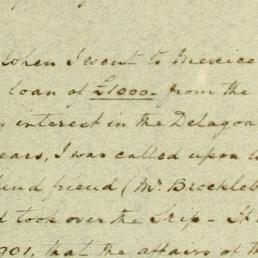 When I went to Mexico
loan of £1000. from the
interest in the Delagoa
ears, I was called upon
kind friend (Mr. Brockleb
took over the Scrip - It
901, that the affairs of th